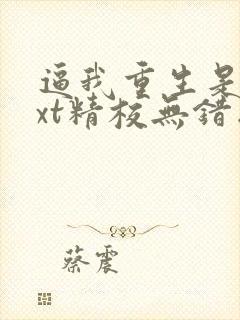 逼我重生是
xt精校無錯
蔡震